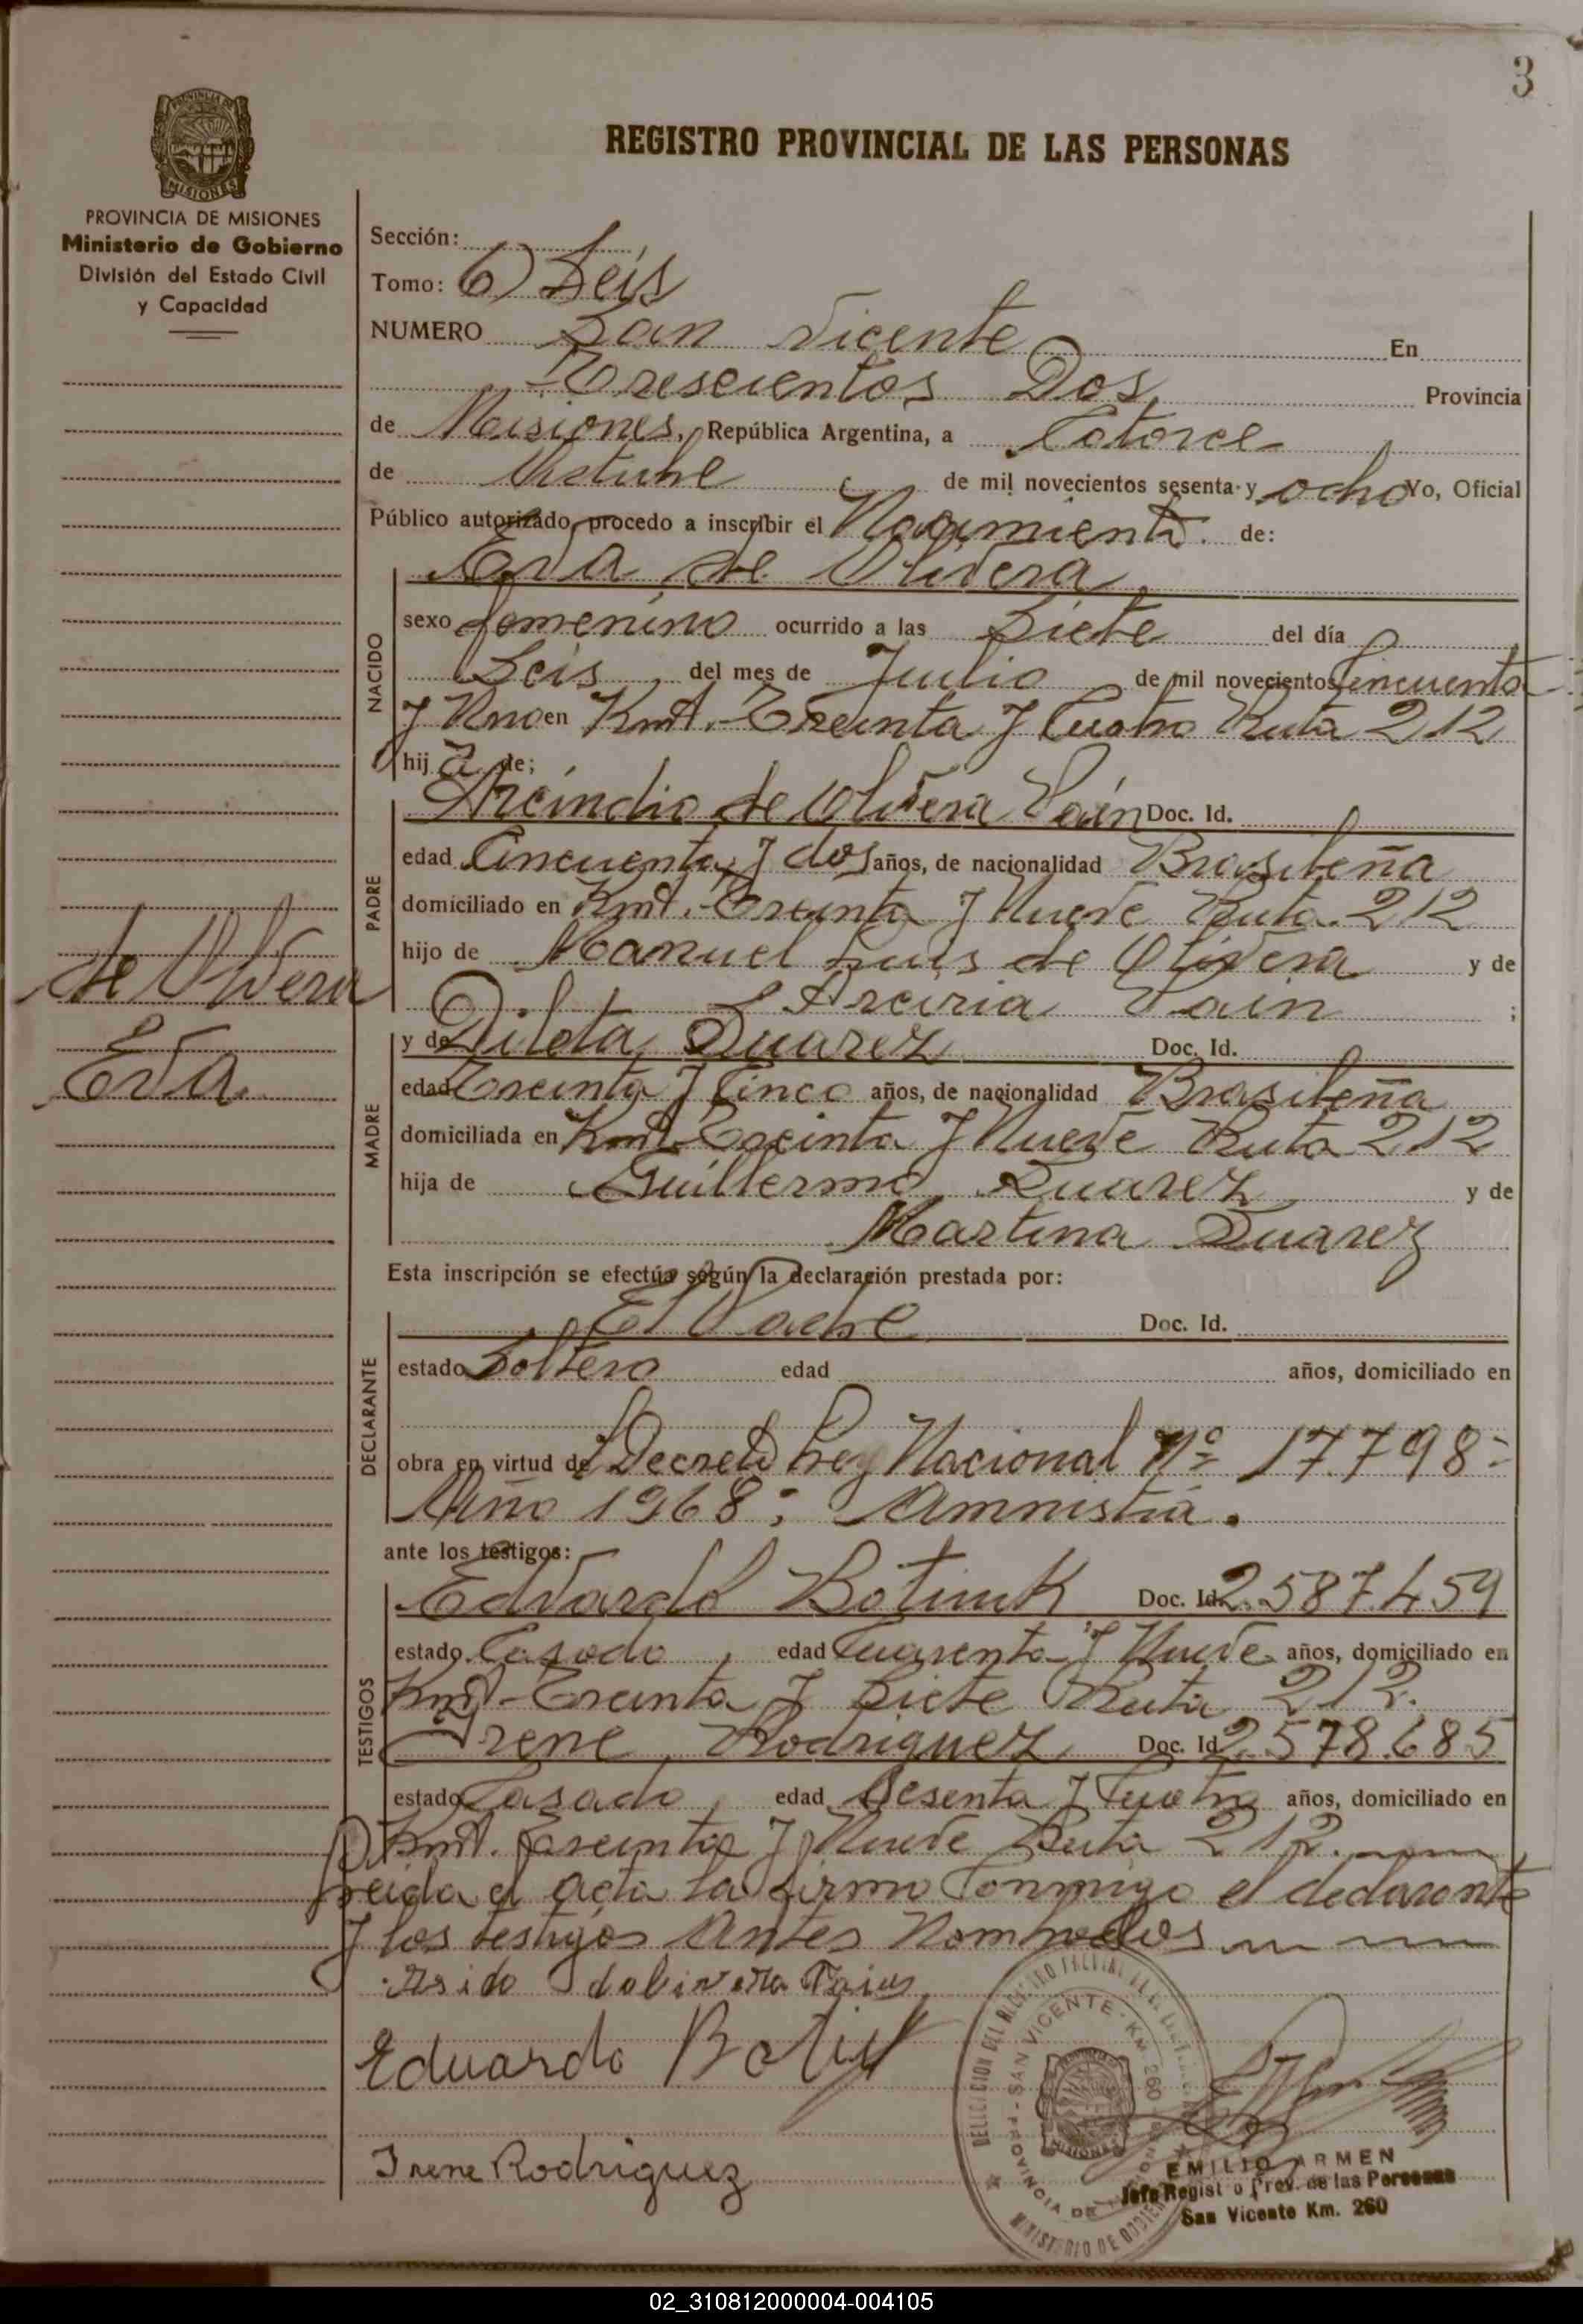 3
REGISTRO PROVINCIAL DE LAS PERSONAS
PROVINCIA DE MISIONES
Ministerio de Gobierno
División del Estado Civil
y Capacidad
Sección:
Tomo: 6) Seis
NUMERO San Vicente En
Trescientos Dos, Provincia
de Misiones, República Argentina, a Catorce
de Octubre de mil novecientos sesenta y ocho Yo, Oficial
Público autorizado, procedo a inscribir el Nacimiento. de:
Eva de Olivera,
NACIDO
sexo femenino ocurrido a las Siete del día
Seis, del mes de Julio de mil novecientos Cincuenta
y Uno en Kmt. Treinta y Cuatro Ruta 212
hij a de;
PADRE
Arcindio de Olivera Pain Doc. Id.
edad Cincuenta y dos años, de nacionalidad Brasileña
domiciliado en Kmt. Treinta y Nueve Ruta 212
hijo de Manuel Luis de Olivera y de
Pain ;
de Olivera
Eva
MADRE
y de Dileta Duarez Doc. Id.
edad Treinta y Cinco años, de nacionalidad Brasileña
domiciliada en Kmt. Treinta y Nueve Ruta 212
hija de Guillermo Duarez y de
Martina Duarez
Esta inscripción se efectúa según la declaración prestada por:
DECLARANTE
El Padre Doc. Id.
estado Soltero edad años, domiciliado en
obra en virtud de Decreto Ley Nacional Nº 17.798-
Año 1968: Amnistia.
ante los testigos:
TESTIGOS
Eduardo Botiuk Doc. Id. 2.587.459
estado Casado, edad Cuarenta y Nueve años, domiciliado en
Kmt. Treinta y Siete Ruta 212.
Irene Rodriguez Doc. Id. 2.578.685
estado Casado, edad Sesenta y Cuatro años, domiciliado en
Kmt. Treinta y Nueve Ruta 212.
Leida el acta la firma Conmigo el declarante
y los testigos Antes Nombrados
Eduardo
Irene Rodriguez
SAN VICENTE - KM. 260
PROVINCIA DE MISIONES
MINISTERIO DE GOBIERNO
EMILIO ARMEN
Jefe Registro Prov. de las Personas
San Vicente Km. 260
02_310812000004-004105